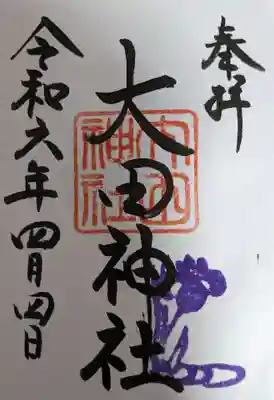 奉拝
大田神社
大田神社
令和六年四月四日